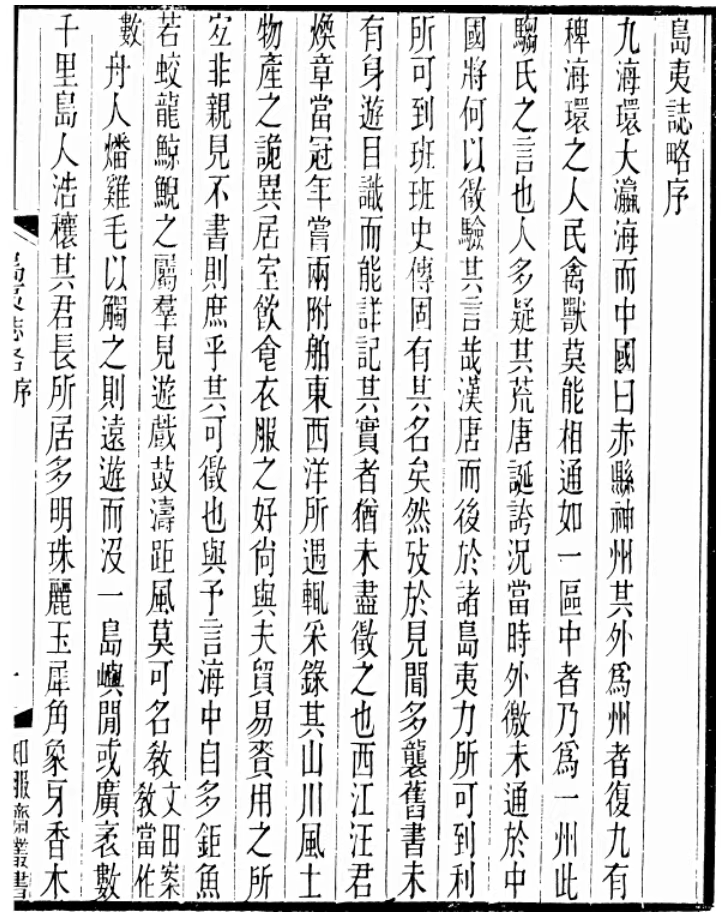 島夷誌略序
九海環大瀛海而中國曰赤縣神州其外爲州者復九有
裨海環之人民禽獸莫能相通如一區中者乃爲一州此
騶氏之言也人多疑其荒唐誕誇況當時外徼未通於中
國將何以徵驗其言哉漢唐而後於諸島夷力所可到利
所可到班班史傳固有其名矣然攷於見聞多襲舊書未
有身遊目識而能詳記其實者猶未盡徵之也西江汪君
煥章當冠年嘗兩附舶東西洋所遇輒采錄其山川風土
物產之詭異居室飮食衣服之好尙與夫貿易賫用之所
宐非親見不書則庶乎其可徵也與予言海中自多鉅魚
若蛟龍鯨鯢之屬羣見遊戲鼓濤距風莫可名敎文田案敎當作
數舟人燔雞毛以觸之則遠遊而沒一島嶼閒或廣袤數
千里島人浩穰其君長所居多明珠麗玉犀角象牙香木
島夷誌略序
一
知服齋叢書